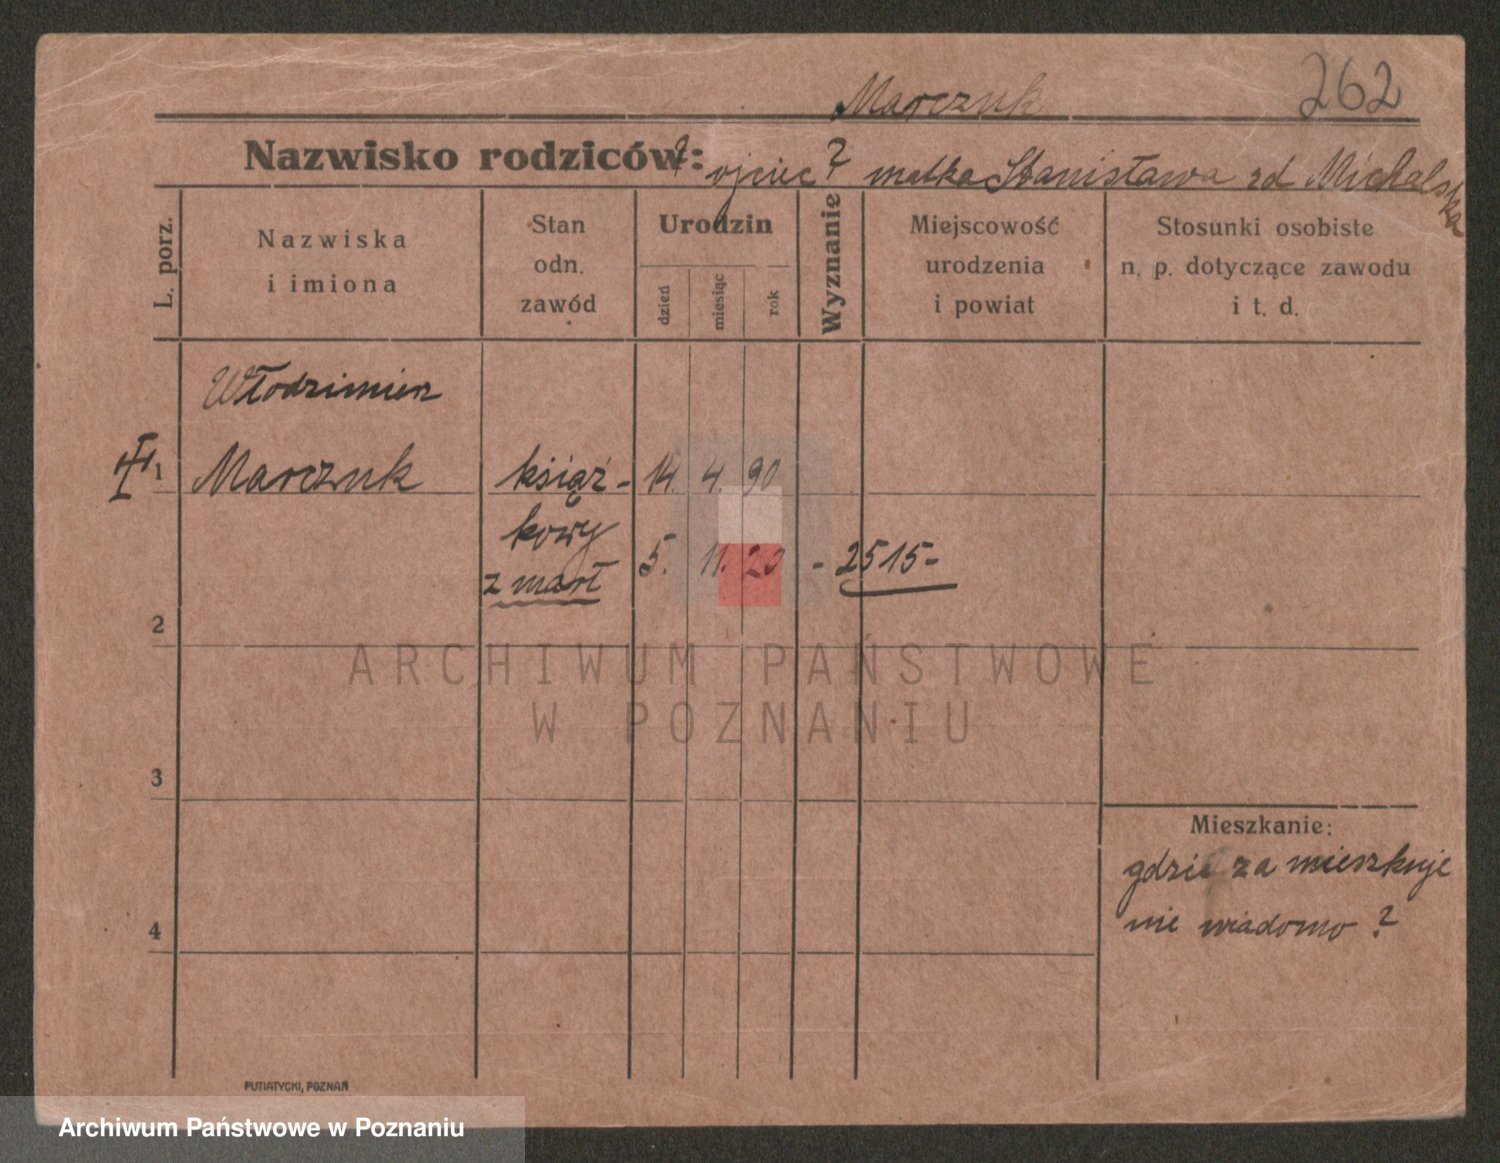 262
Marczuk
Nazwisko rodziców: ? ojciec ? matka Stanisława zd Michalska
L. porz.
Nazwiska
i imiona
Stan
odn.
zawód
Urodzin
dzień
miesiąc
rok
Wyznanie
Miejscowość
urodzenia
i powiat
Stosunki osobiste
n. p. dotyczące zawodu
i t. d.
Włodzimierz
1 Marczuk książ- 14. 4. 90
kowy
zmarł 5. 11. 20 - 2515-
2
ARCHIWUM PAŃSTWOWE
W POZNANIU
3
Mieszkanie:
gdzie zamieszkuje
nie wiadomo ?
4
PUTIATYCKI, POZNAŃ
Archiwum Państwowe w Poznaniu